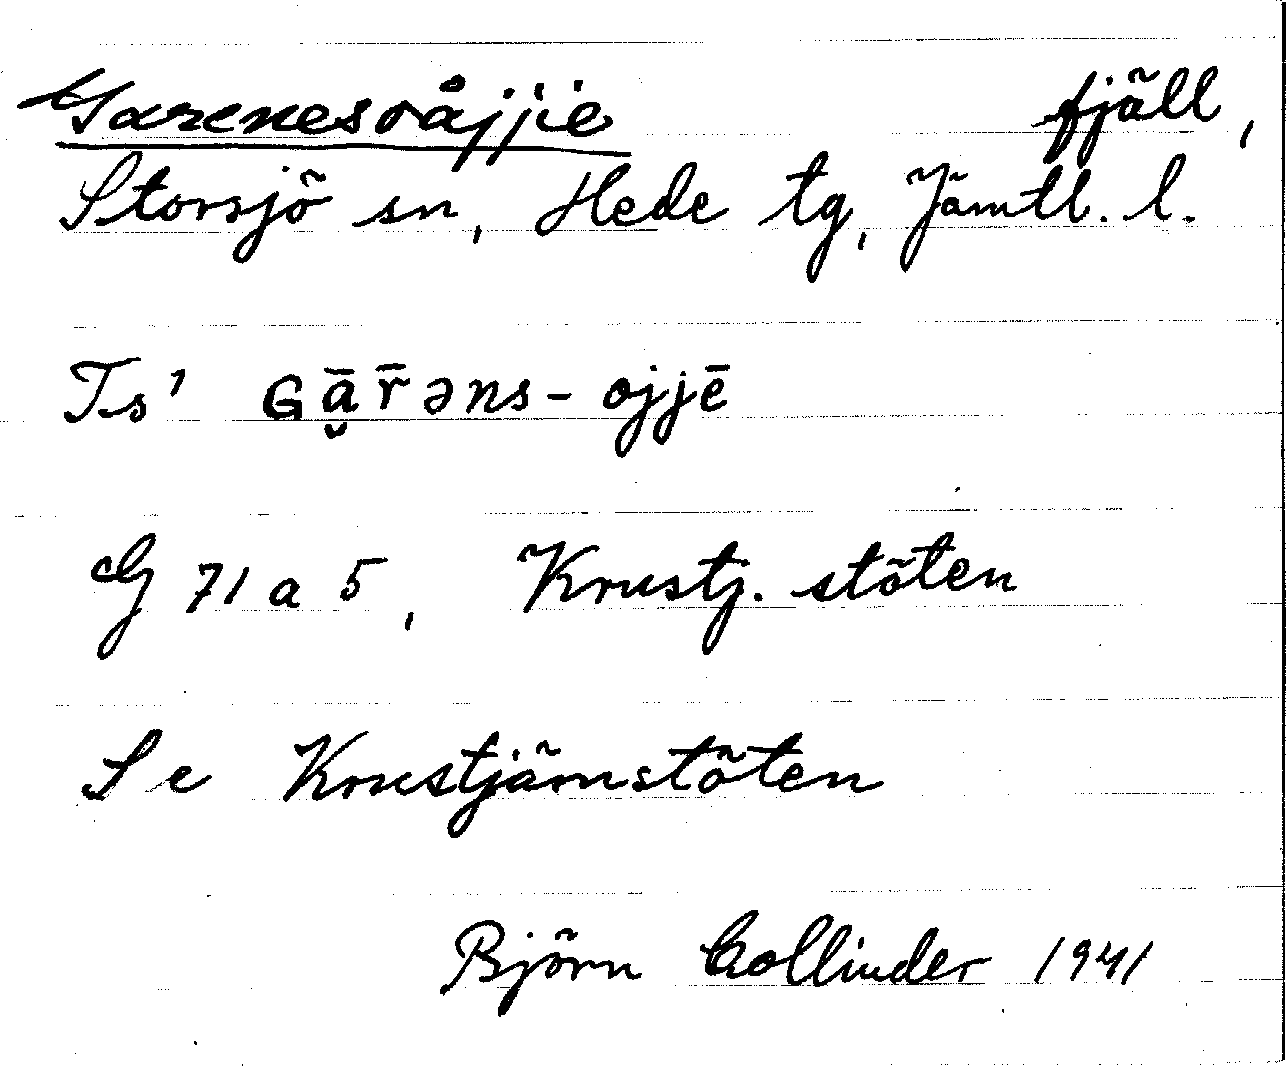 Garenesoåjjie fjäll,
Storsjö sn, Hede tg, Jämtl. l.
Ts' Gā̮r̄əns-ojjē
G 71 a 5, Krustj. stöten
Se Krustjärnstöten
Björn Collinder 1941